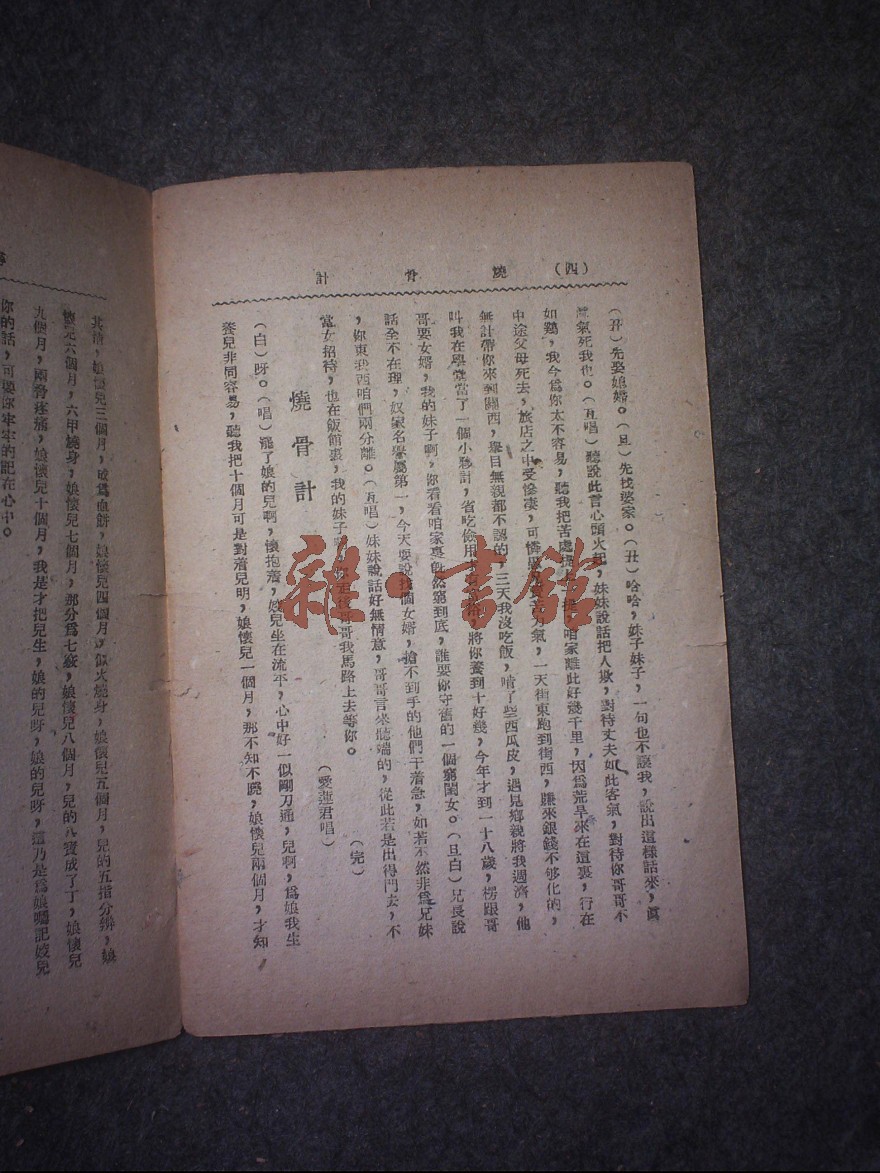 (四) 燒骨計
(丑)先娶媳婦。(旦)先找婆家。(丑)哈哈,妹子妹子,一句也不讓我,說出這樣話來,眞
氣死我也。(丑唱)聽說此言心頭火起,妹妹說話把人欺,對待丈夫如此客氣,對待你哥哥不
如鷄,我今爲你太不容易,聽我把苦處提上一提,咱家離此好幾千里,因爲荒旱來在這裏,行在
中途父母死去,旅店之中受慘凄,可憐 力氣,一天街東跑到街西,賺來銀錢不够化的,
無計帶你來到關西,舉目無親都不認的,三天我沒吃飯,啃了些西瓜皮,遇見鄉親將我週濟,他
叫我在學堂當了一個小夥計,省吃儉用 將你養到十好幾,今年才到一十八歲,楞跟哥
哥要女婿,我的妹子啊,你看看咱家裏 然窮到底,誰要你守舊的一個窮閨女。(旦白)兄長說
話全不在理,奴家名譽屬第一,今天要說找個女婿,搶不到手的他們干着急,如若不然非爲兄妹
,你東我西咱們兩分離。(丑唱)妹妹說話好無情意,哥哥言來聽端的,從此若是出得門去,不
當女招待,也在飯館裏,我的妹子 哥哥我馬路上去等你。 (完)
燒骨計 (愛蓮君唱)
(白)呀。(唱)罷了娘的兒啊,懷抱着,姣兒坐在流平,心中好一似剛刀通,兒啊,爲娘我生
養兒非同容易,聽我把十個月可是對着兒明,娘懷兒一個月,那不知不曉,娘懷兒兩個月,才知
其情,娘懷兒三個月,成爲血餅,娘懷兒四個月,似火燒身,娘懷兒五個月,兒的五指分辨,娘
懷兒六個月,六甲繞身,娘懷兒七個月,那分爲七竅,娘懷兒八個月,兒的八寶成了丁,娘懷兒
九個月,兩骨疼痛,娘懷兒十個月,我是才把兒生,娘的兒呀,娘的兒呀,這乃是爲娘囑記姣兒
你的話,可要你牢牢的記在心中。
雜·書館